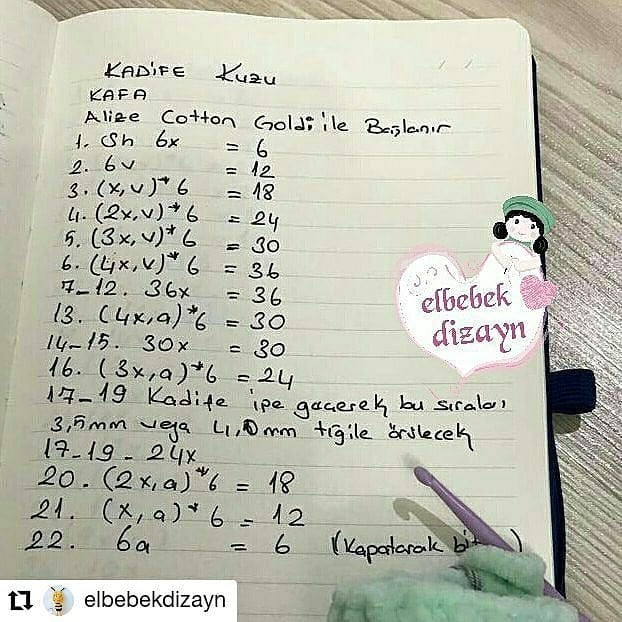 KADİFE Kuzu
KAFA
Alize Cotton Gold ile Başlanır
1. Sh 6x = 6
2. 6v = 12
3. (x,v)*6 = 18
4. (2x,v)*6 = 24
5. (3x,v)*6 = 30
6. (4x,v)*6 = 36
7-12. 36x = 36
13. (4x,a)*6 = 30
14-15. 30x = 30
16. (3x,a)*6 = 24
17-19 Kadife ipe geçerek bu sıraları
3,5mm veya 4,0mm tığ ile örülecek
17-19 - 24x
20. (2x,a)*6 = 18
21. (x,a)*6 = 12
22. 6a = 6 (Kapatarak
elbebek
dizayn
elbebekdizayn